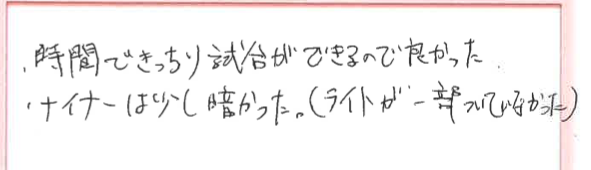 ・時間できっちり試合ができるので良かった
・ナイナーは少し暗かった。(ライトが一部ついてなかった)